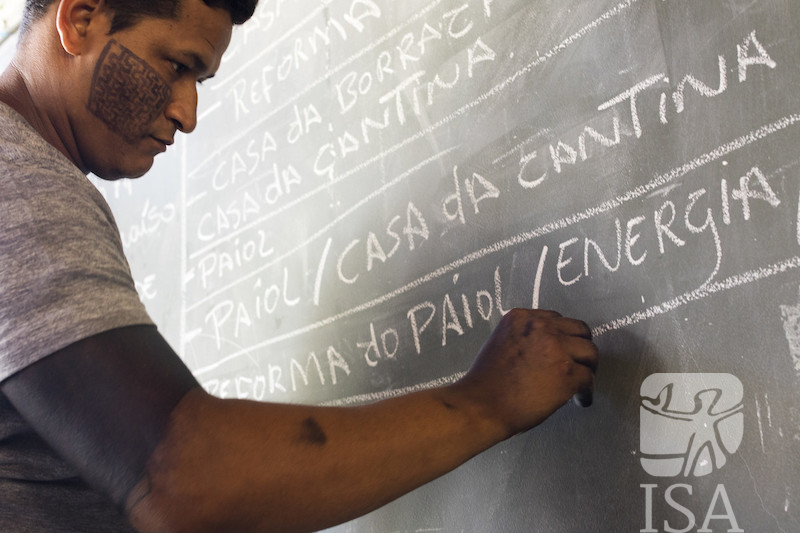 - REFORMA
- CASA da
CASA da CANTINA
- PAIOL
- PAIOL / CASA da CANTINA
REFORMA do PAIOL / ENERGIA
ISA